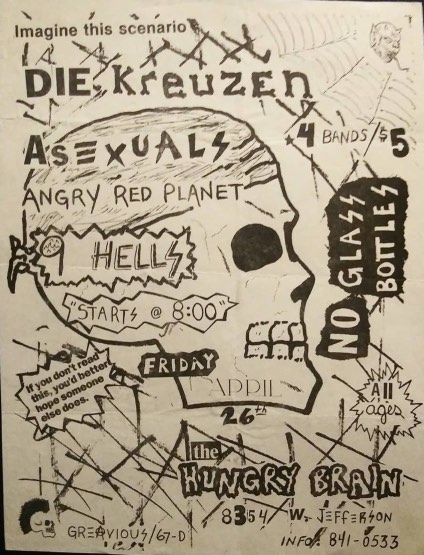 Imagine this scenario
DIE KREUZEN
ASEXUALS
4 BANDS/$5
ANGRY RED PLANET
9 HELLS
"STARTS @ 8:00"
NO GLASS BOTTLES
If you don't read
this, you'd better
hope someone
else does.
FRIDAY
APRIL
26th
All
ages
the
HUNGRY BRAIN
8354 W. JEFFERSON
GREAVIOUS/67-D
INFO: 841-0533